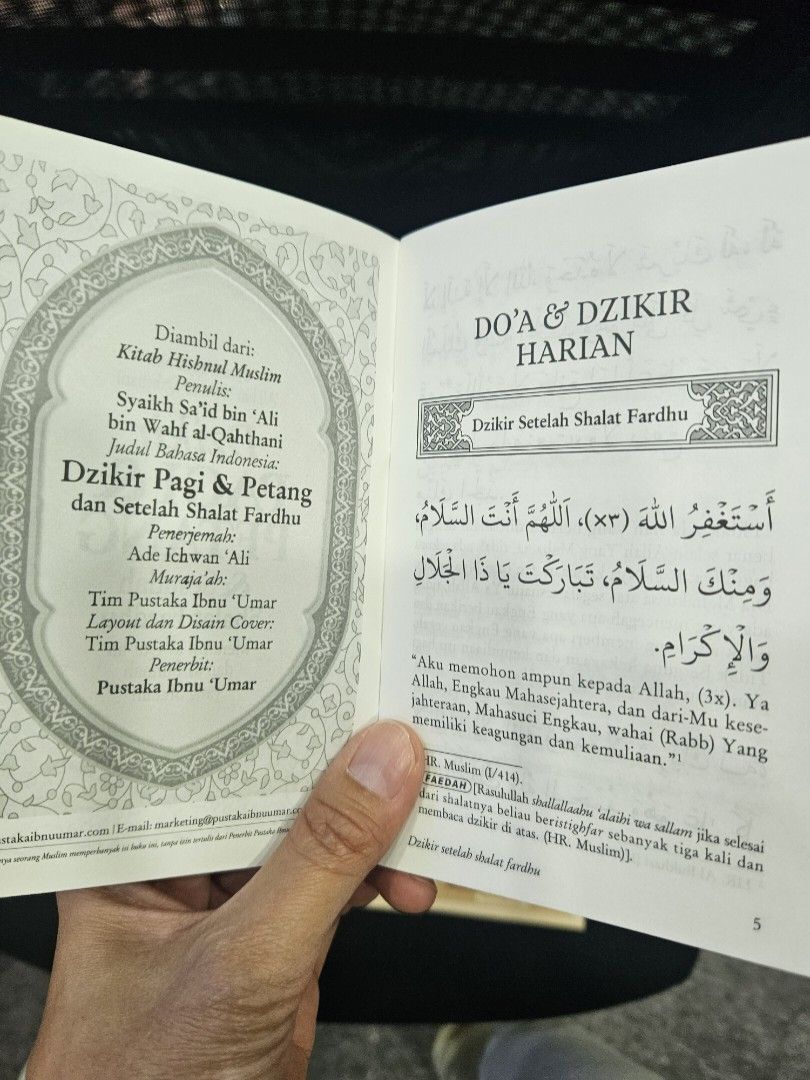 Diambil dari:
Kitab Hishnul Muslim
Penulis:
Syaikh Sa'id bin 'Ali
bin Wahf al-Qahthani
Judul Bahasa Indonesia:
Dzikir Pagi & Petang
dan Setelah Shalat Fardhu
Penerjemah:
Ade Ichwan 'Ali
Muraja'ah:
Tim Pustaka Ibnu 'Umar
Layout dan Disain Cover:
Tim Pustaka Ibnu 'Umar
Penerbit:
Pustaka Ibnu 'Umar
stakaibnuumar.com | E-mail: marketing@pustakaibnuumar.co
nya seorang Muslim memperbanyak isi buku ini, tanpa izin tertulis dari Penerbit Pustaka Ibnu
DO'A & DZIKIR
HARIAN
Dzikir Setelah Shalat Fardhu
أَسْتَغْفِرُ اللهَ (×٣)، اَللّٰهُمَّ أَنْتَ السَّلَامُ،
وَمِنْكَ السَّلَامُ، تَبَارَكْتَ يَا ذَا الْجَلَالِ
وَالْإِكْرَامِ.
"Aku memohon ampun kepada Allah, (3x). Ya
Allah, Engkau Mahasejahtera, dan dari-Mu kese-
jahteraan, Mahasuci Engkau, wahai (Rabb) Yang
memiliki keagungan dan kemuliaan."¹
HR. Muslim (I/414).
FAEDAH [Rasulullah shallallaahu 'alaihi wa sallam jika selesai
dari shalatnya beliau beristighfar sebanyak tiga kali dan
membaca dzikir di atas. (HR. Muslim)].
Dzikir setelah shalat fardhu
5